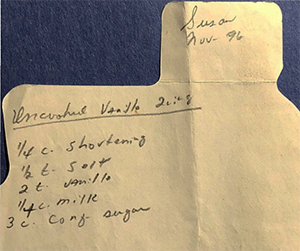 Susan
Nov- 96
Uncooked Vanilla Icing
1/4 c. Shortening
1/2 t. Salt
2 t. Vanilla
1/4 c. milk
3 c. Conf sugar